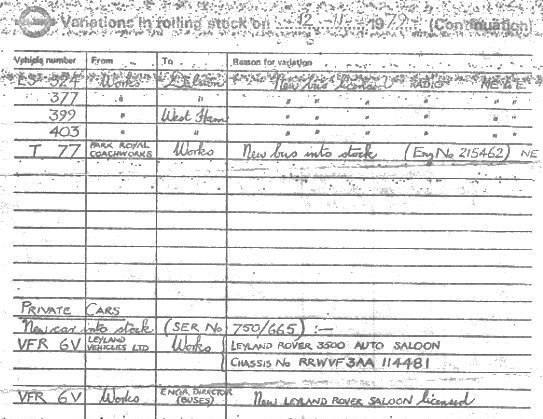 Variations in rolling stock on 12 - 11 - 1979 (Continuation)
Vehicle number From To Reason for variation
LS 324 Works Dalston New bus licensed RADIO NE
377 " " " " " " " "
399 " West Ham " " " " " "
403 " " " " " " " "
T 77 PARK ROYAL COACHWORKS Works New bus into stock (Eng No 215462) NE
PRIVATE CARS
New car into stock (SER No 750/665) :—
VFR 6V LEYLAND VEHICLES LTD Works LEYLAND ROVER 3500 AUTO SALOON
CHASSIS No RRWVF3AA 114481
VFR 6V Works ENGR. DIRECTOR (BUSES) New LEYLAND ROVER SALOON licensed